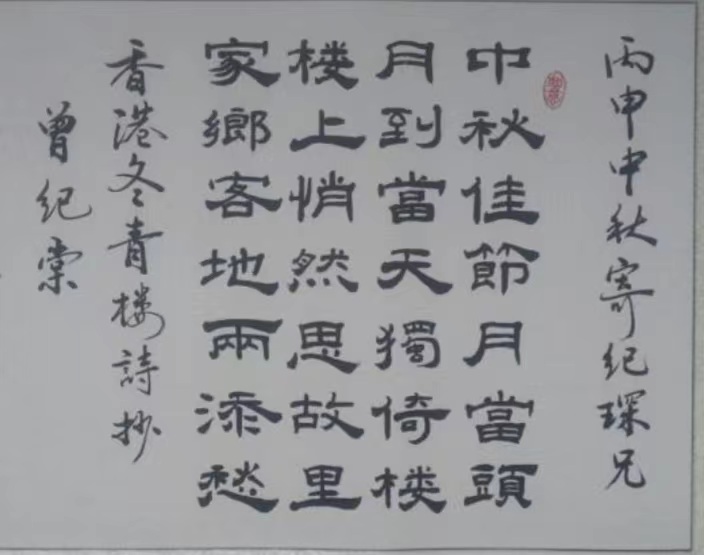 丙申中秋寄纪琛兄
中秋佳節月當頭
月到當天獨倚楼
楼上悄然思故里
家鄉客地兩添愁
香港冬青楼詩抄
曾纪棠